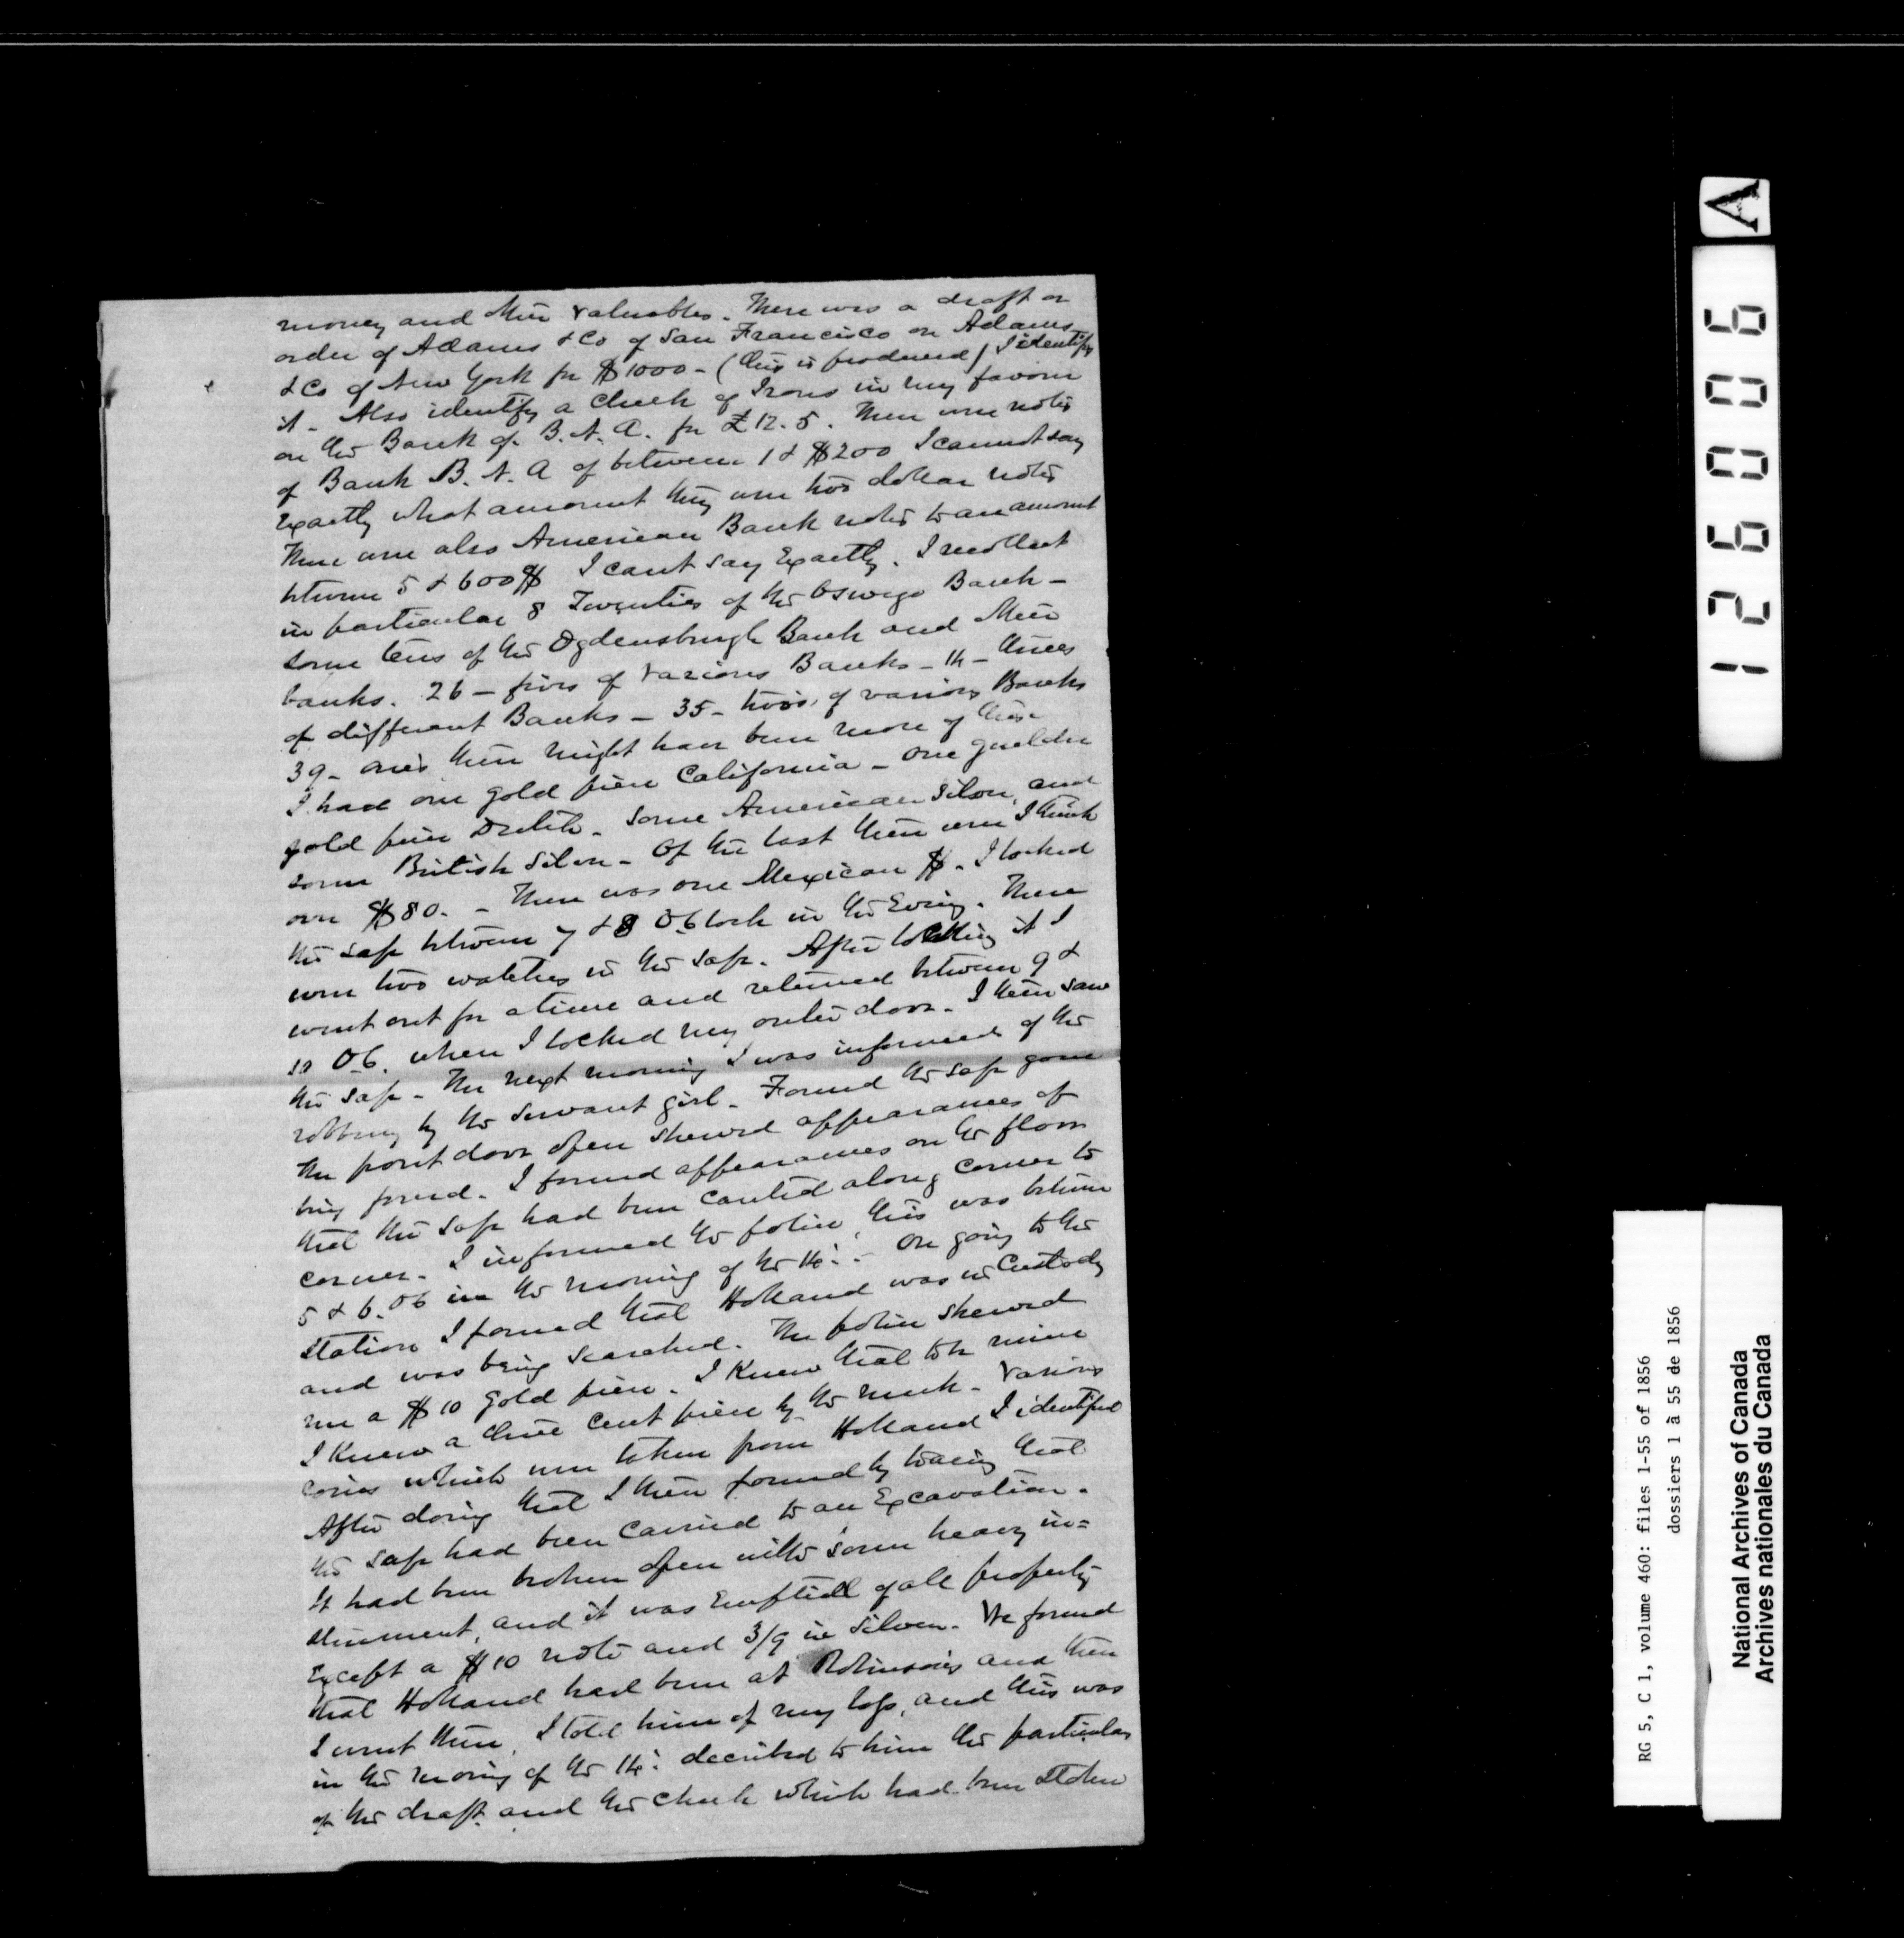 money and other valuables. There was a draft or
order of Adams & Co of San Francisco on Adams
& Co of New York for $1000 - (this is produced) I identify
it - Also identify a check of Irons in my favour
on the Bank of B. N. A. for £12.5. There were notes
of Bank B. N. A of between 1 & $200 I cannot say
Exactly what amount they were two dollar notes
There were also American Bank notes to an amount
between 5 & 600$ I cant say Exactly. I recollect
in particular 8 Twenties of the Oswego Bank -
some tens of the Ogdensburgh Bank and other
banks. 26 - fives of various Banks - 14 - threes
of different Banks - 35 - twos, of various Banks
39 - ones there might have been more of these
I had one gold piece California - one guelder
gold piece Dutch - some American silver, and
some British silver - Of the last there were I think
over $80. - There was one Mexican $. I locked
the safe between 7 & 8 O.Clock in the Eveing. There
were two watches in the safe. After locking it I
went out for a time and returned between 9 &
10 OC. when I locked my outer door. I then saw
the safe - The next morning I was informed of the
robbery by the servant girl - Found the safe gone
the front door open shewed appearances of
being forced. I found appearances on the floor
that the safe had been canted along corner to
corner. I informed the police, this was between
5 & 6. OC in the morning of the 14: - On going to the
station I found that Holland was in Custody
and was being searched. The police shewed
me a $10 Gold piece. I Knew that to be mine
I Knew a three Cent piece by the mark. Various
coins which were taken from Holland I identified
After doing that I then found by tracing that
the safe had been carried to an Excavation.
It had been broken open with some heavy in=
strument, and it was Emptied of all property
Except a $10 note and 3/9 in silver. We found
that Holland had been at Robinson's and then
I went there. I told him of my loss, and this was
in the morning of the 14: described to him the particulars
of the draft and the check which had been stolen
126006
A
RG 5, C 1, volume 460: files 1-55 of 1856
dossiers 1 à 55 de 1856
National Archives of Canada
Archives nationales du Canada